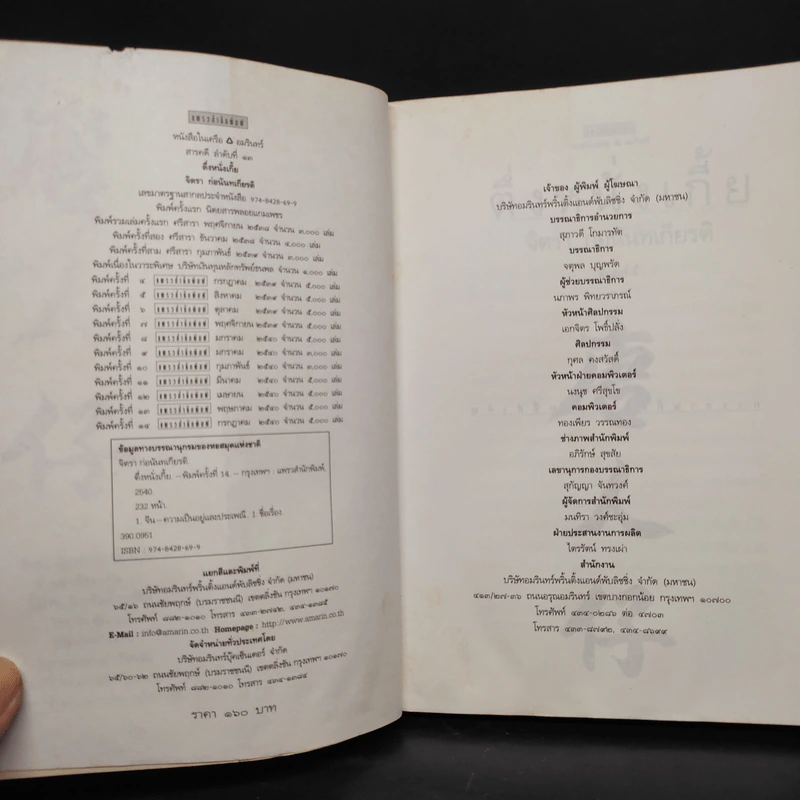 แพรวสำนักพิมพ์
หนังสือในเครือ อมรินทร์
สารคดี ลำดับที่ ๑๓
ตึ่งหนั่งเกี้ย
จิตรา ก่อนันทเกียรติ
เลขมาตรฐานสากลประจำหนังสือ 974-8428-69-9
พิมพ์ครั้งแรก นิตยสารพลอยแกมเพชร
พิมพ์รวมเล่มครั้งแรก ศรีสารา พฤศจิกายน ๒๕๓๘ จำนวน ๓,๐๐๐ เล่ม
พิมพ์ครั้งที่สอง ศรีสารา ธันวาคม ๒๕๓๘ จำนวน ๔,๐๐๐ เล่ม
พิมพ์ครั้งที่สาม ศรีสารา กุมภาพันธ์ ๒๕๓๙ จำนวน ๓,๐๐๐ เล่ม
พิมพ์เนื่องในวาระพิเศษ บริษัทเงินทุนหลักทรัพย์ธนพล จำนวน ๑,๐๐๐ เล่ม
พิมพ์ครั้งที่ ๔ แพรวสำนักพิมพ์ กรกฎาคม ๒๕๓๙ จำนวน ๕,๐๐๐ เล่ม
พิมพ์ครั้งที่ ๕ แพรวสำนักพิมพ์ สิงหาคม ๒๕๓๙ จำนวน ๕,๐๐๐ เล่ม
พิมพ์ครั้งที่ ๖ แพรวสำนักพิมพ์ ตุลาคม ๒๕๓๙ จำนวน ๕,๐๐๐ เล่ม
พิมพ์ครั้งที่ ๗ แพรวสำนักพิมพ์ พฤศจิกายน ๒๕๓๙ จำนวน ๕,๐๐๐ เล่ม
พิมพ์ครั้งที่ ๘ แพรวสำนักพิมพ์ มกราคม ๒๕๔๐ จำนวน ๕,๐๐๐ เล่ม
พิมพ์ครั้งที่ ๙ แพรวสำนักพิมพ์ มกราคม ๒๕๔๐ จำนวน ๕,๐๐๐ เล่ม
พิมพ์ครั้งที่ ๑๐ แพรวสำนักพิมพ์ กุมภาพันธ์ ๒๕๔๐ จำนวน ๕,๐๐๐ เล่ม
พิมพ์ครั้งที่ ๑๑ แพรวสำนักพิมพ์ มีนาคม ๒๕๔๐ จำนวน ๕,๐๐๐ เล่ม
พิมพ์ครั้งที่ ๑๒ แพรวสำนักพิมพ์ เมษายน ๒๕๔๐ จำนวน ๕,๐๐๐ เล่ม
พิมพ์ครั้งที่ ๑๓ แพรวสำนักพิมพ์ พฤษภาคม ๒๕๔๐ จำนวน ๕,๐๐๐ เล่ม
พิมพ์ครั้งที่ ๑๔ แพรวสำนักพิมพ์ กรกฎาคม ๒๕๔๐ จำนวน ๕,๐๐๐ เล่ม
ข้อมูลทางบรรณานุกรมของหอสมุดแห่งชาติ
จิตรา ก่อนันทเกียรติ.
ตึ่งหนั่งเกี้ย. --พิมพ์ครั้งที่ 14. -- กรุงเทพฯ : แพรวสำนักพิมพ์,
2540.
232 หน้า.
1. จีน--ความเป็นอยู่และประเพณี. I. ชื่อเรื่อง.
390.0951
ISBN : 974-8428-69-9
แยกสีและพิมพ์ที่
บริษัทอมรินทร์พริ้นติ้งแอนด์พับลิชชิ่ง จำกัด (มหาชน)
๖๕/๑๖ ถนนชัยพฤกษ์ (บรมราชชนนี) เขตตลิ่งชัน กรุงเทพฯ ๑๐๑๗๐
โทรศัพท์ ๘๘๒-๑๐๑๐ โทรสาร ๔๓๓-๒๗๔๒, ๔๓๔-๑๓๘๕
E-Mail : info@amarin.co.th Homepage : http://www.amarin.co.th
จัดจำหน่ายทั่วประเทศโดย
บริษัทอมรินทร์บุ๊คเซ็นเตอร์ จำกัด
๖๕/๖๐-๖๒ ถนนชัยพฤกษ์ (บรมราชชนนี) เขตตลิ่งชัน กรุงเทพฯ ๑๐๑๗๐
โทรศัพท์ ๘๘๒-๑๐๑๐ โทรสาร ๔๓๔-๑๓๘๔
ราคา ๑๖๐ บาท
เจ้าของ ผู้พิมพ์ ผู้โฆษณา
บริษัทอมรินทร์พริ้นติ้งแอนด์พับลิชชิ่ง จำกัด (มหาชน)
บรรณาธิการอำนวยการ
สุภาวดี โกมารทัต
บรรณาธิการ
จตุพล บุญพรัด
ผู้ช่วยบรรณาธิการ
นภาพร พิทยวราภรณ์
หัวหน้าศิลปกรรม
เอกจิตร โพธิ์ปลั่ง
ศิลปกรรม
กุศล คงสวัสดิ์
หัวหน้าฝ่ายคอมพิวเตอร์
นงนุช ศรีสุขโข
คอมพิวเตอร์
ทองเพียร วรรณทอง
ช่างภาพสำนักพิมพ์
อภิรักษ์ สุขสัย
เลขานุการกองบรรณาธิการ
สุกัญญา จันทวงศ์
ผู้จัดการสำนักพิมพ์
มนทิรา วงศ์ชะอุ่ม
ฝ่ายประสานงานการผลิต
ไตรรัตน์ ทรงเผ่า
สำนักงาน
บริษัทอมรินทร์พริ้นติ้งแอนด์พับลิชชิ่ง จำกัด (มหาชน)
๔๑๓/๒๗-๓๖ ถนนอรุณอมรินทร์ เขตบางกอกน้อย กรุงเทพฯ ๑๐๗๐๐
โทรศัพท์ ๔๓๔-๐๒๘๖ ต่อ ๔๗๐๓
โทรสาร ๔๓๓-๘๗๙๒, ๔๓๔-๘๖๙๙